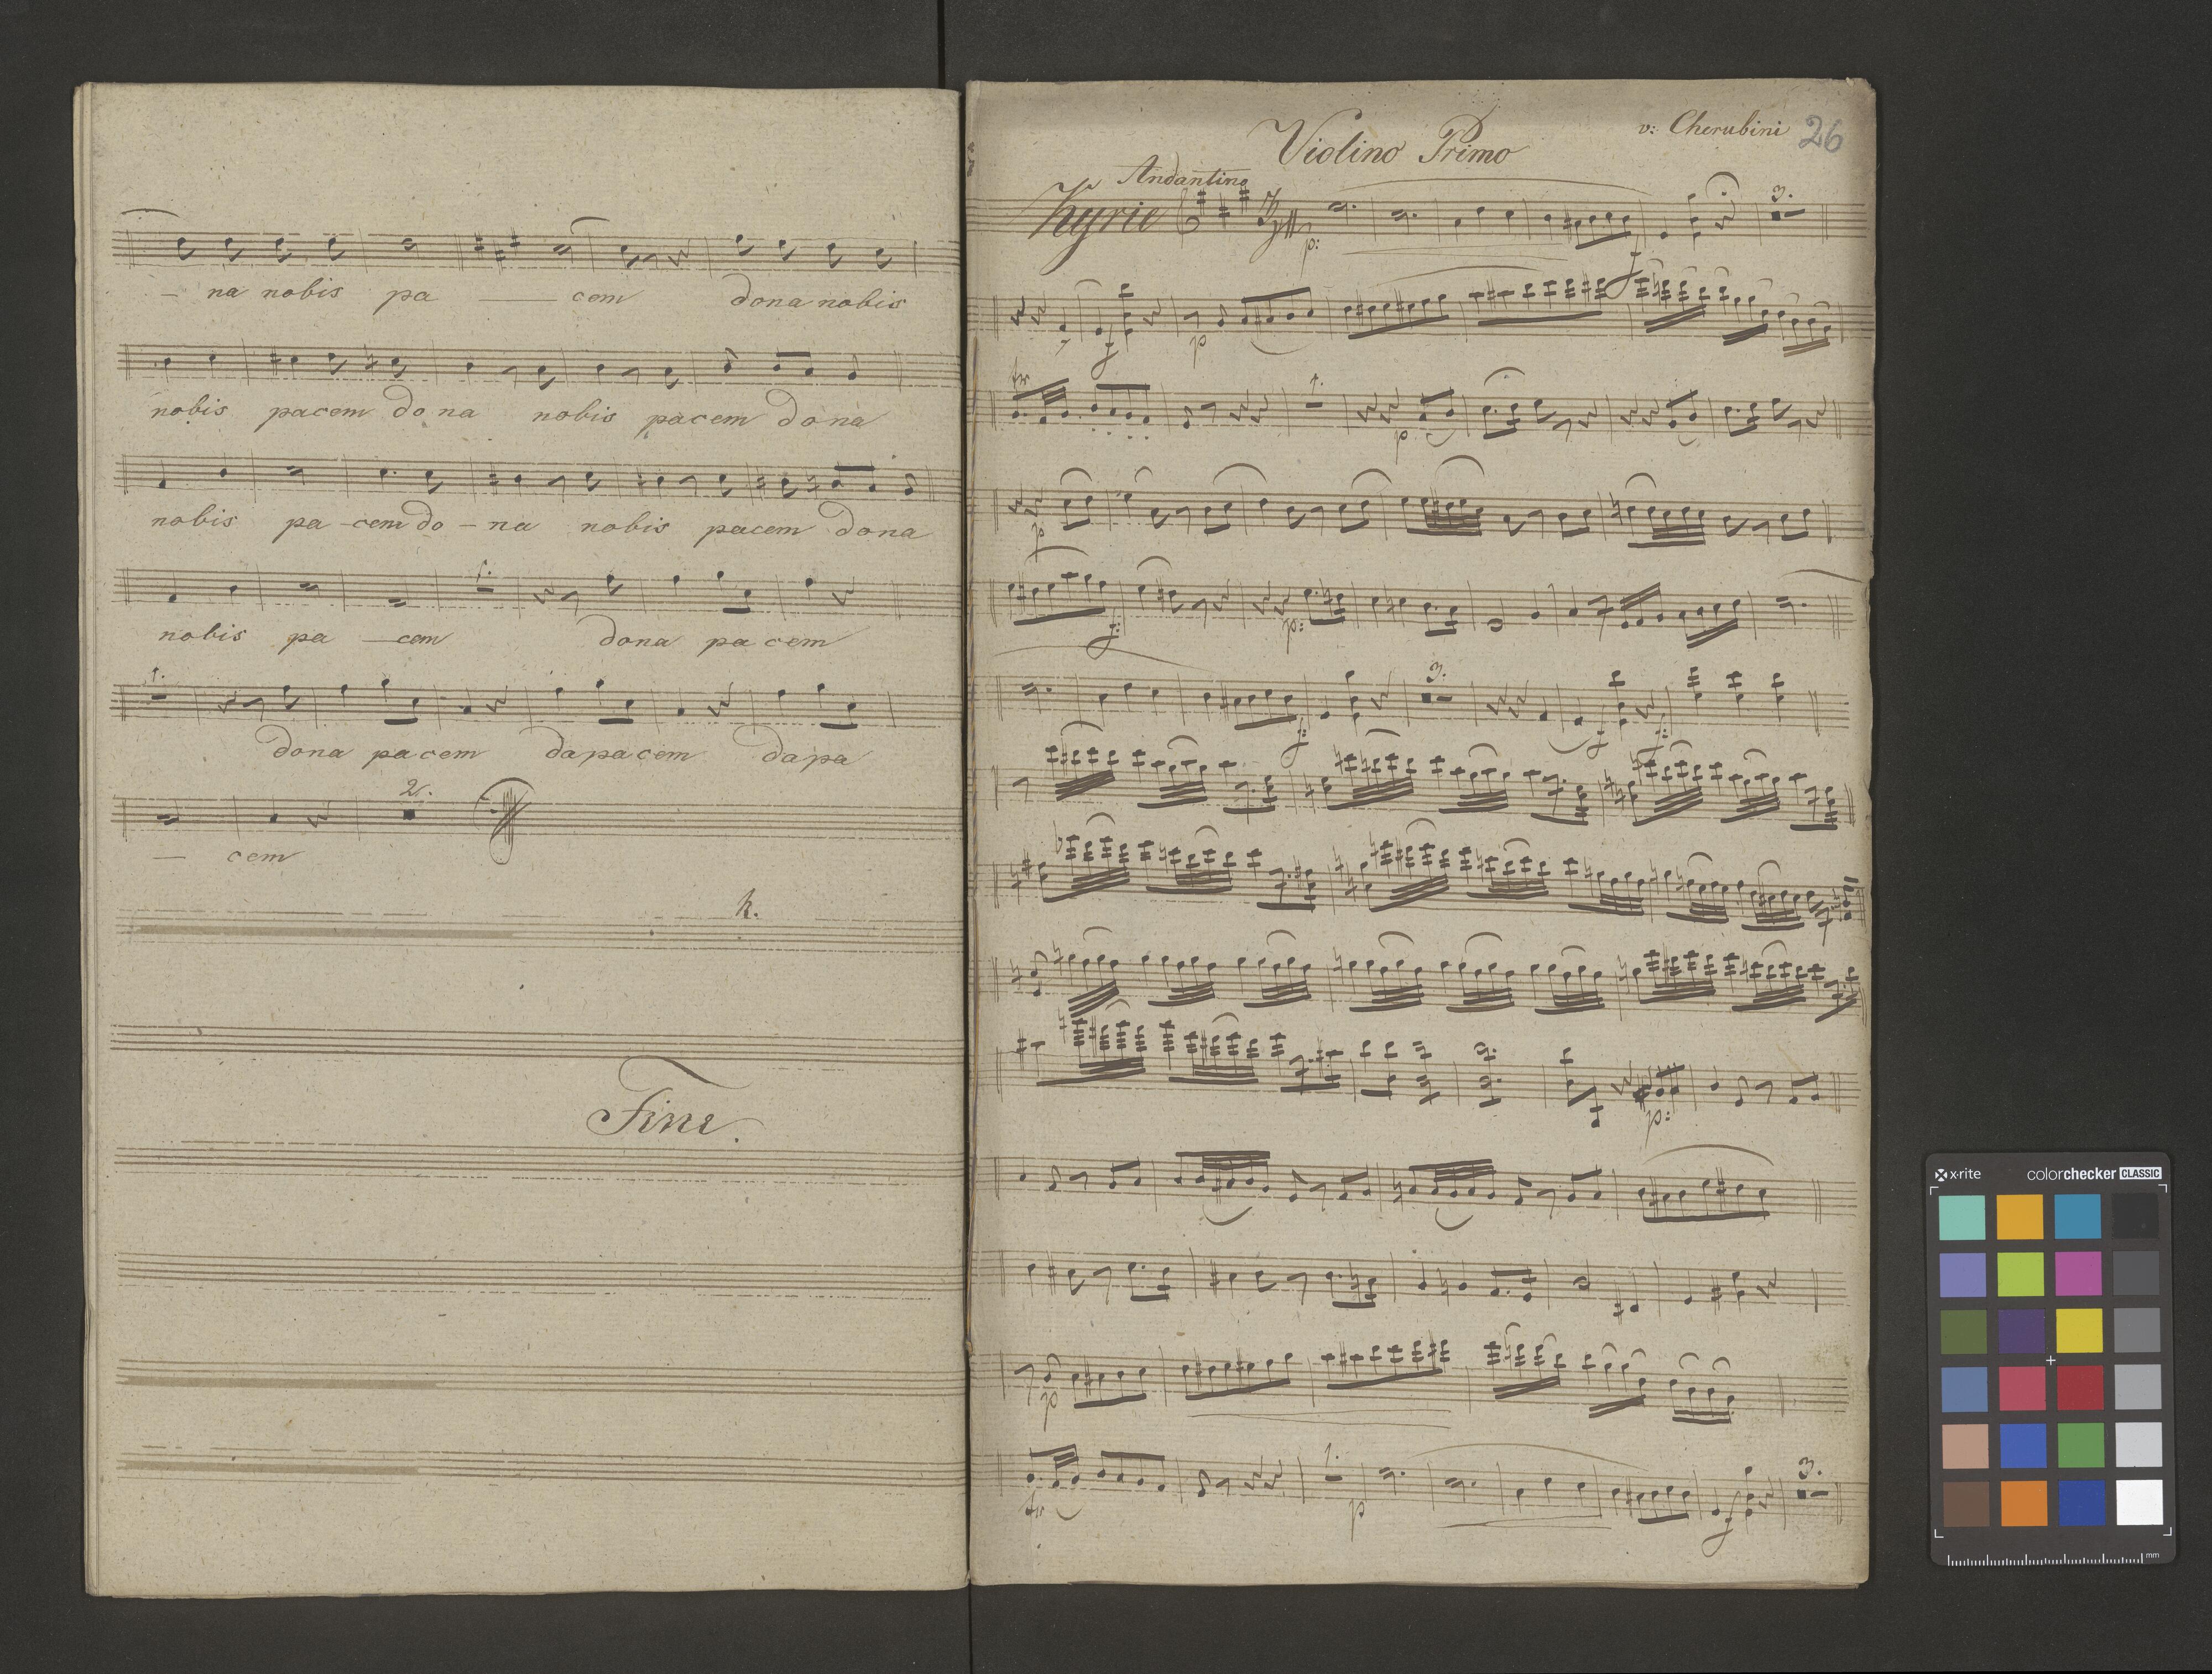 – na nobis pa — cem dona nobis
nobis pacem dona nobis pacem dona
nobis pa – cem do – na nobis pacem dona
1.
nobis pa – cem dona pa cem
1.
dona pacem da pacem da pa
2.
– cem
Fine.
Violino Primo
v: Cherubini
26
Andantino
Kyrie
p:
3.
f
f
p
tr
1.
p
p
f:
p:
3.
f:
f
f:
p:
p
1.
3.
tr
p
f
x·rite
colorchecker CLASSIC
mm